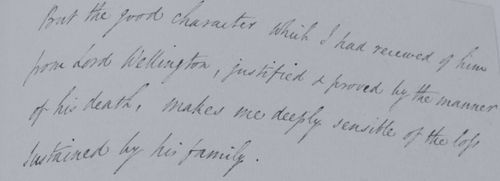 But the good character which I had received of him
from Lord Wellington, justified & proved by the manner
of his death, makes me deeply sensible of the loss
sustained by his family.